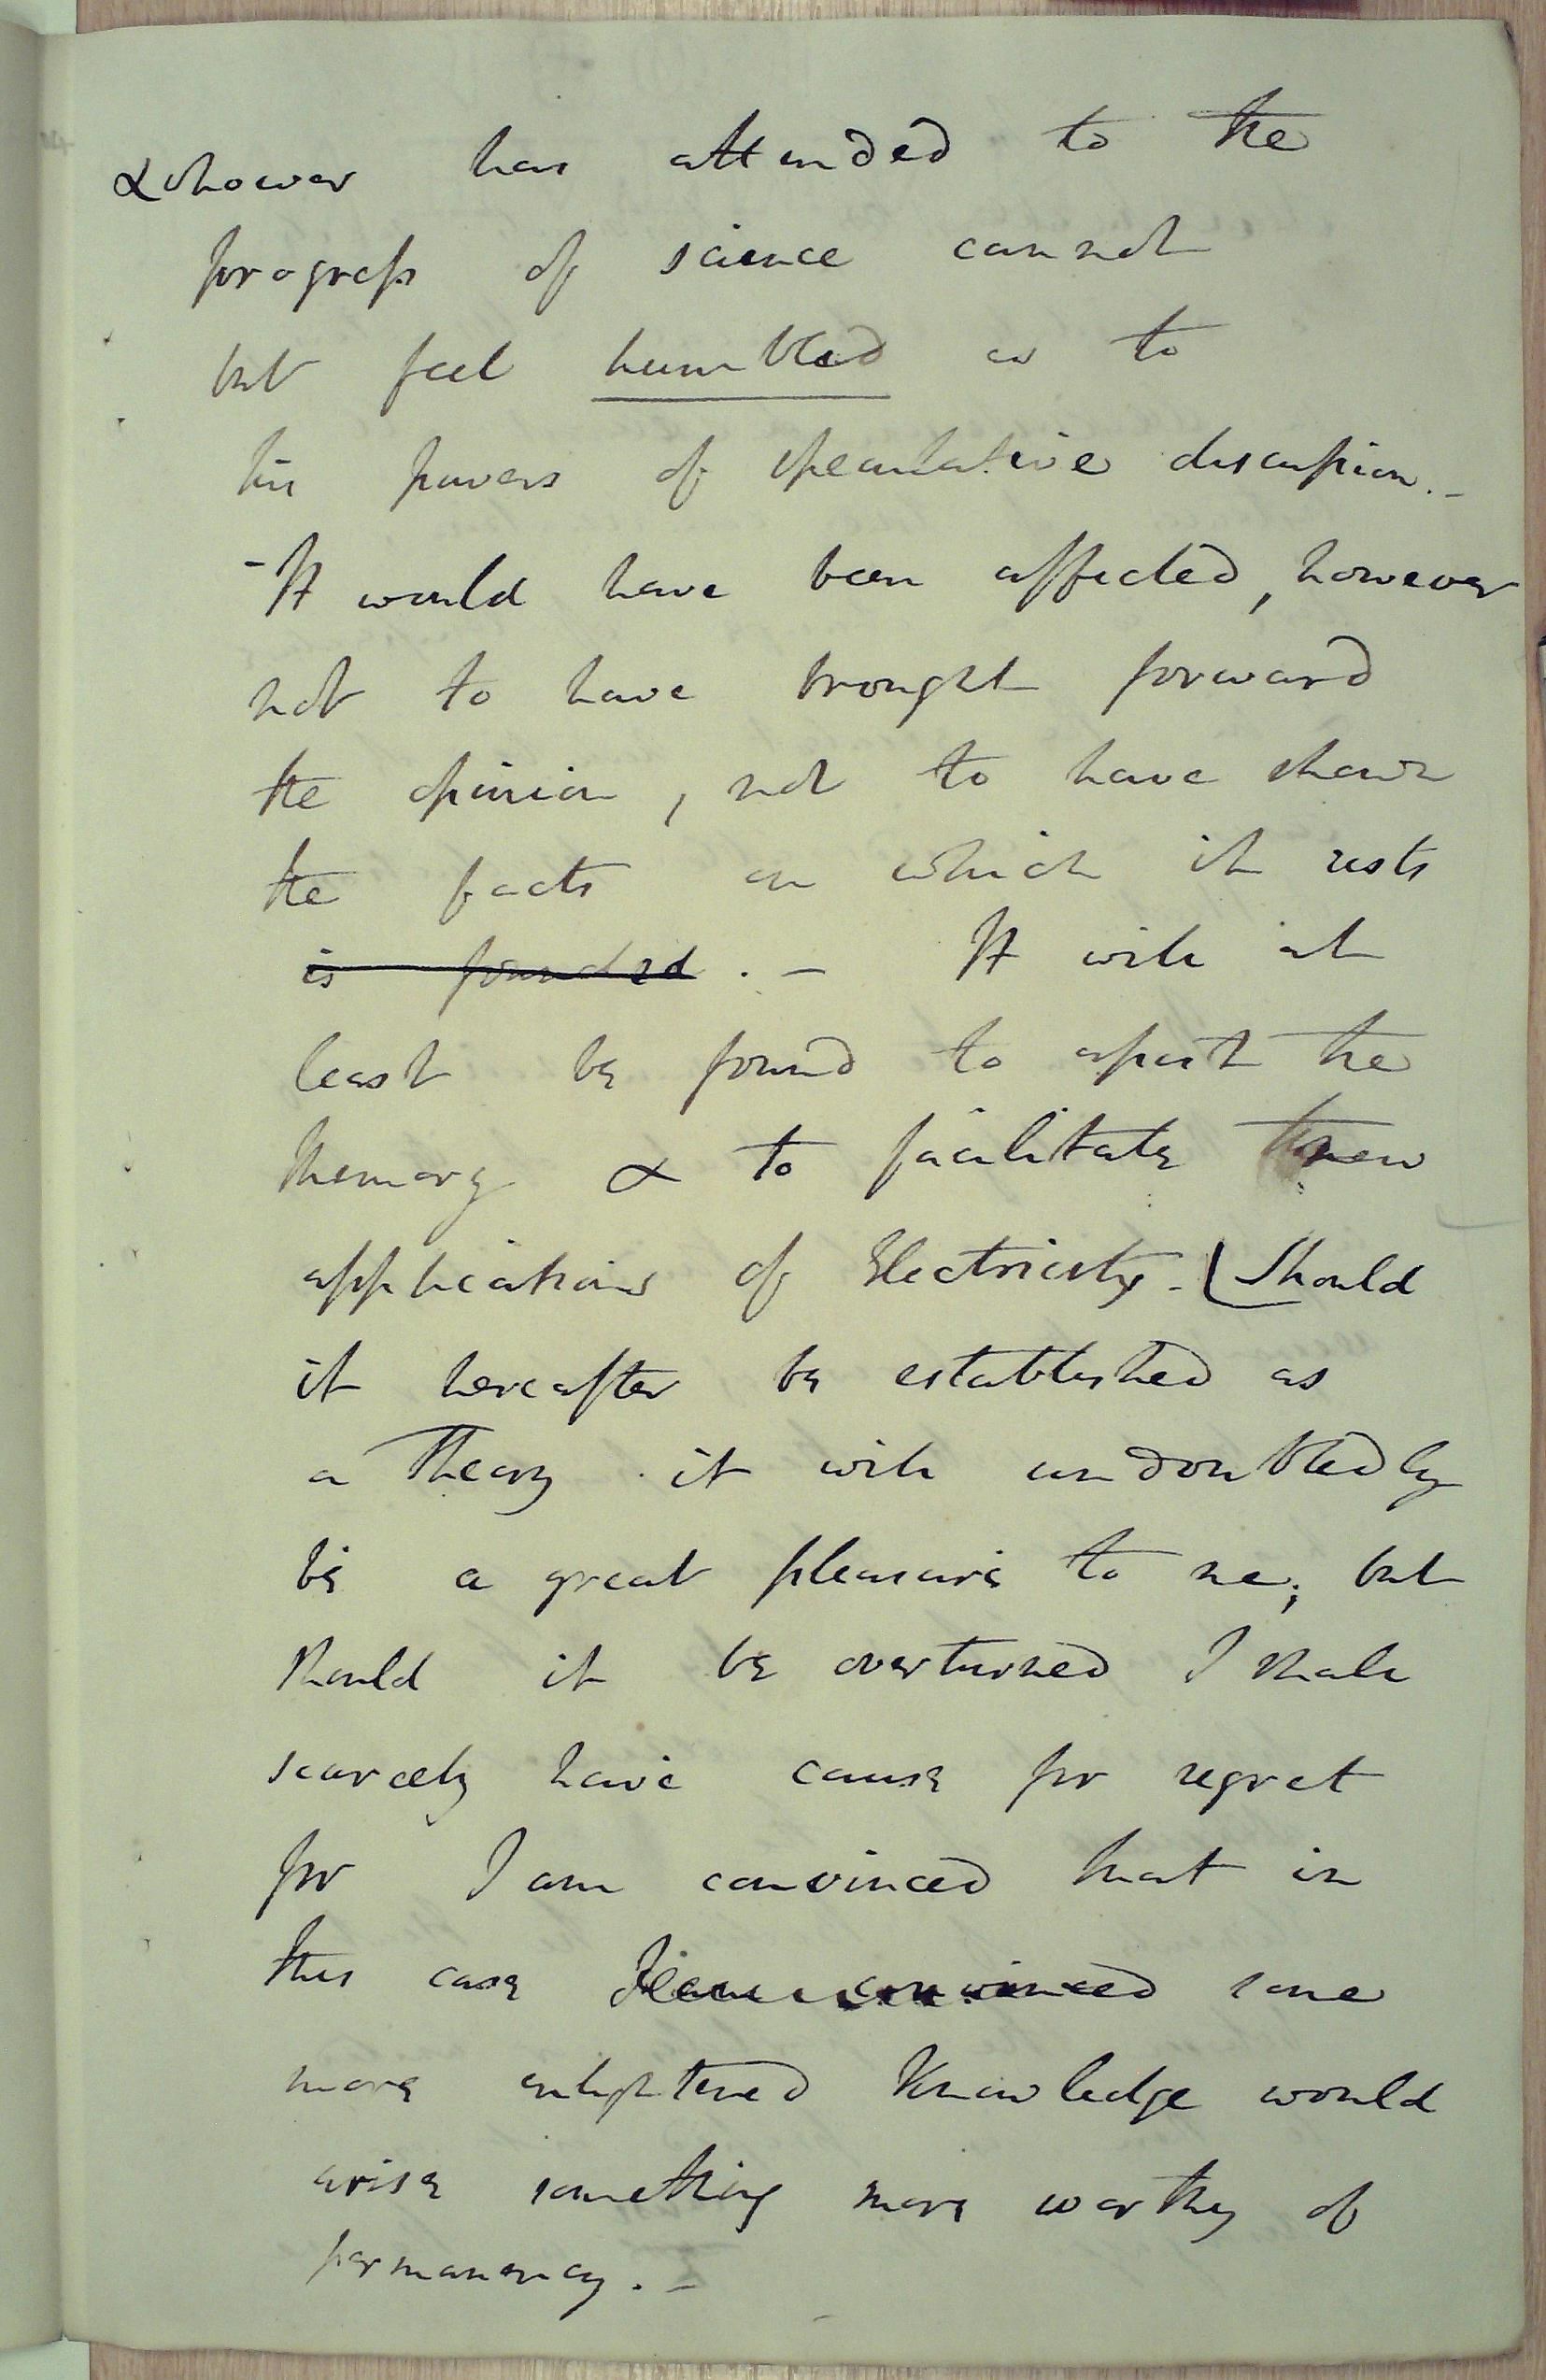 & whoever has attended to the
progress of science cannot
but feel humbled as to
his powers of speculative discussion. -
- It would have been affected, however
not to have brought forward
the opinion, not to have shewn
the facts on which it rests
is founded. - It will at
least be found to assist the
memory & to facilitate new
applications of Electricity. - (Should
it hereafter be established as
a Theory it will undoubtedly
be a great pleasure to me; but
should it be overturned I shall
scarcely have cause for regret
for I am convinced that in
this case I am convinced some
more enlightened Knowledge would
arise something more worthy of
permanency. -